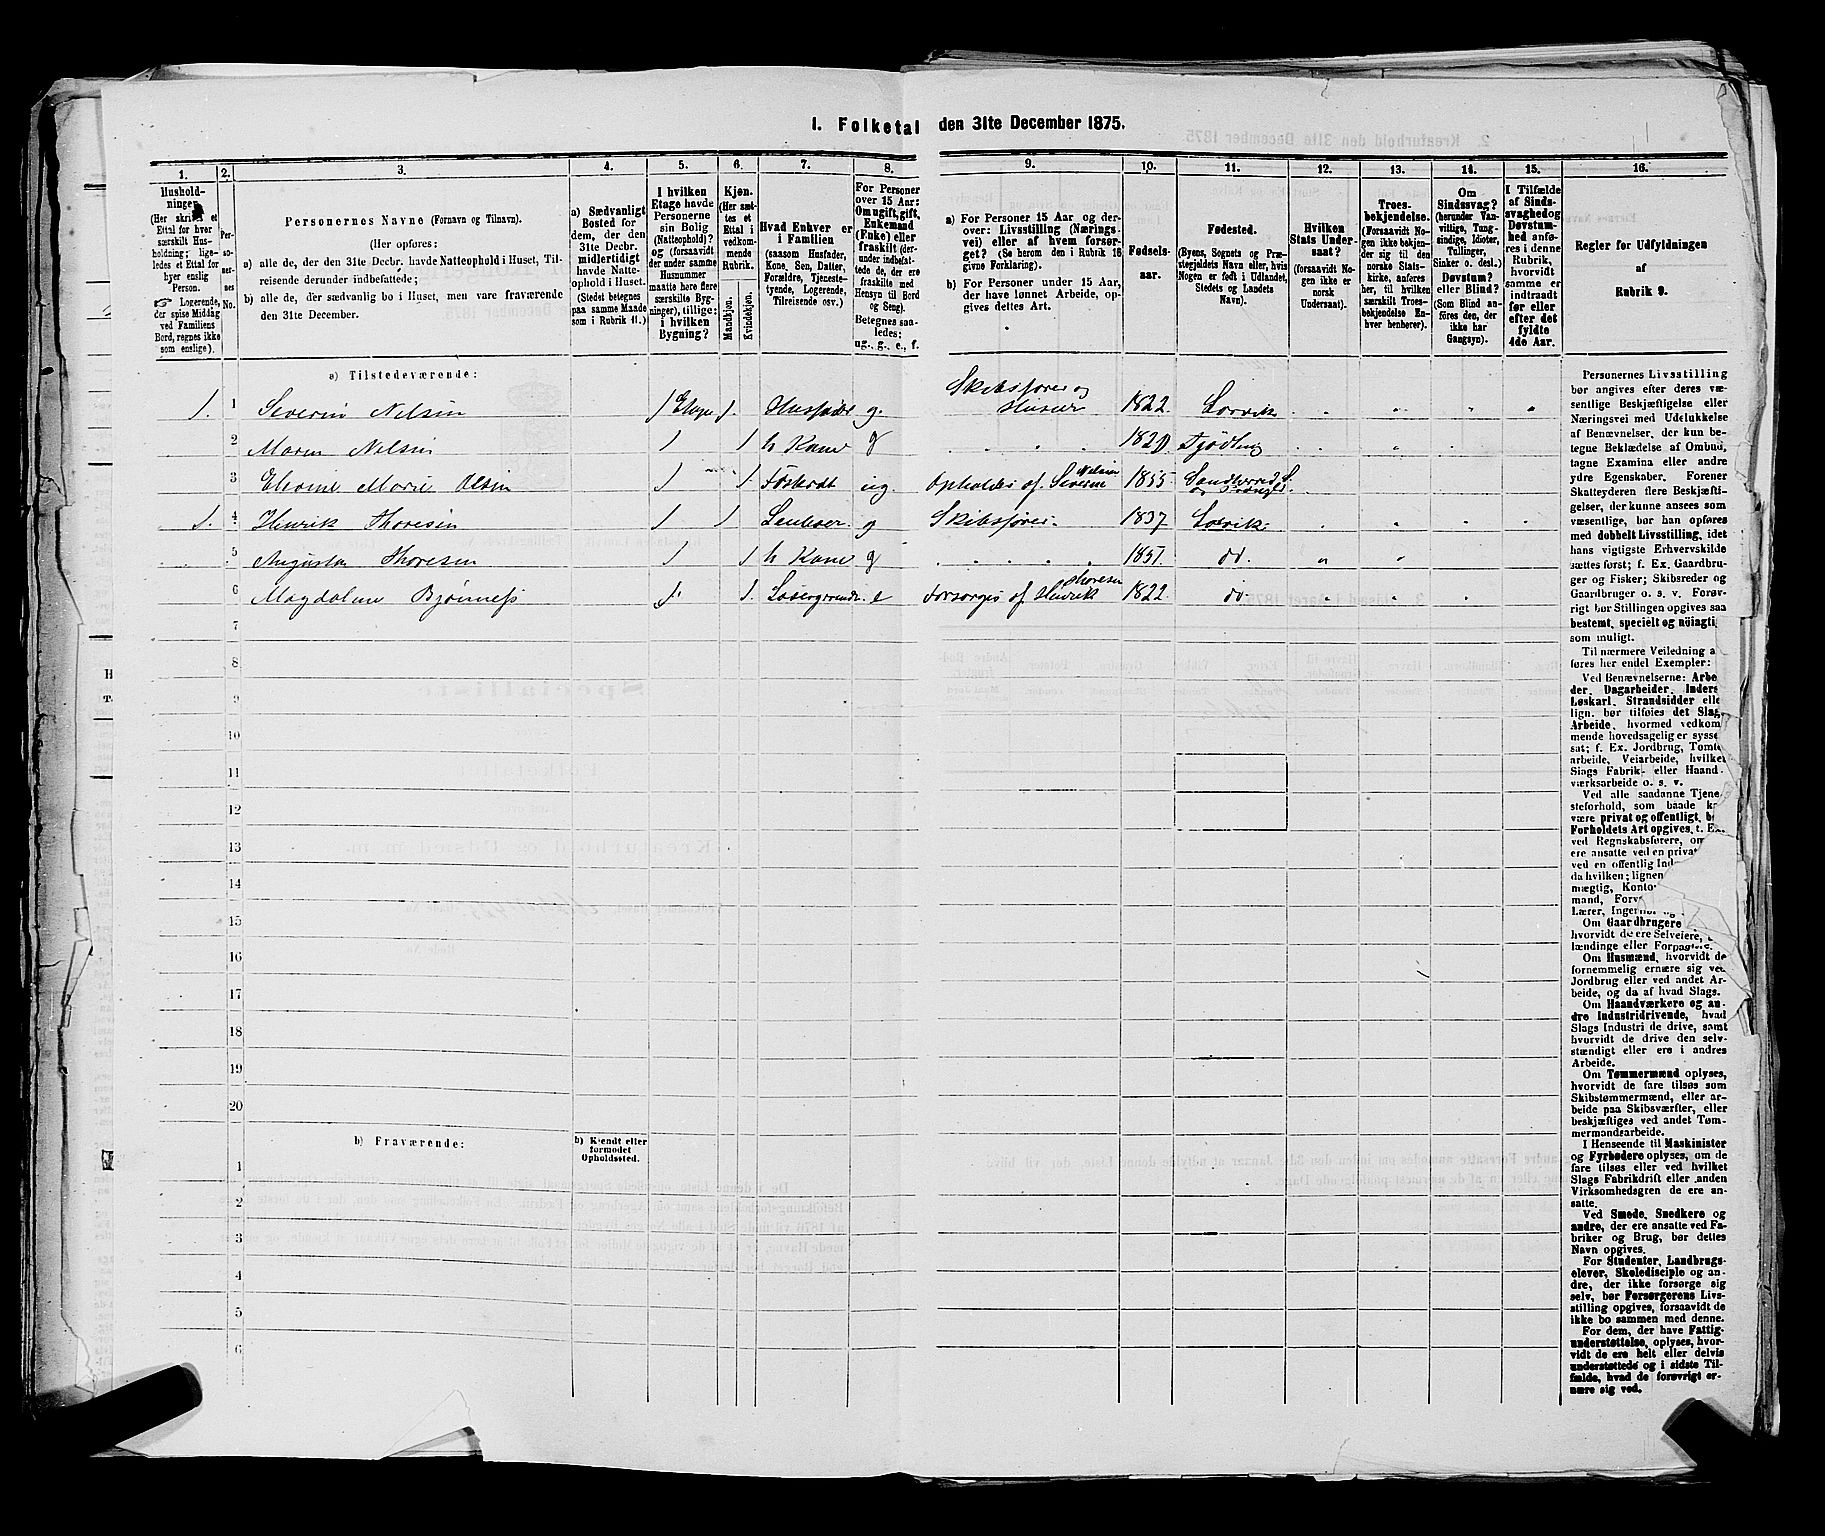 1. Folketal den 31te December 1875.
1. 2. 3. 4. 5. 6. 7. 8. 9. 10. 11. 12. 13. 14. 15. 16.
Hushold-
ninger.
(Her skrives et
Ettal for hver
særskilt Hus-
holdning; lige-
ledes et Ettal for
hver enslig
Person.
☞ Logerende,
der spise Middag
ved Familiens
Bord, regnes ikke
som enslige).
Per-
so-
ner-
nes
No.
Personernes Navne (Fornavn og Tilnavn).
(Her opføres:
a) alle de, der den 31te Decbr. havde Natteophold i Huset, Til-
reisende derunder indbefattede;
b) alle de, der sædvanlig bo i Huset, men vare fraværende
den 31te December.
a) Sædvanligt
Bosted for
dem, der den
31te Decbr.
midlertidigt
havde Natte-
ophold i Huset.
(Stedet betegnes
paa samme Maade
som i Rubrik 11.)
I hvilken
Etage havde
Personerne
sin Bolig
(Natteophold)?
og (forsaavidt
der under samme
Husnummer
maatte høre flere
særskilte Byg-
ninger), tillige:
i hvilken
Bygning?
Kjøn.
(Her sæt-
tes et
Ettal i
vedkom-
mende
Rubrik.
Mandkjøn.
Kvindekjøn.
Hvad Enhver er
i Familien
(saasom Husfader,
Kone, Søn, Datter,
Forældre, Tjeneste-
tyende, Logerende,
Tilreisende osv.)
For Personer
over 15 Aar:
Om ugift, gift,
Enkemand
(Enke) eller
fraskilt (der-
under indbefat-
tede de, der ere
fraskilte med
Hensyn til Bord
og Seng).
Betegnes saa-
ledes:
ug., g., e., f.
a) For Personer 15 Aar og der-
over: Livsstilling (Nærings-
vei) eller af hvem forsør-
get? (Se herom den i Rubrik 16
givne Forklaring).
b) For Personer under 15 Aar,
der have lønnet Arbeide, op-
gives dettes Art.
Fødsels-
aar.
Fødested.
(Byens, Sognets og Præ-
stegjeldets Navn eller, hvis
Nogen er født i Udlandet,
Stedets og Landets
Navn).
Hvilken
Stats Under-
saat?
(forsaavidt No-
gen ikke er
norsk
Undersaat).
Troes-
bekjendelse.
(Forsaavidt No-
gen ikke bekjen-
der sig til den
norske Stats-
kirke, anføres
her, til hvilken
særskilt Troes-
bekjendelse En-
hver henhører).
Om
Sindssvag?
(herunder Van-
vittige, Tung-
sindige, Idioter,
Tullinger,
Sinker o. desl.)
Døvstum?
eller Blind?
(Som Blind an-
føres den, der
ikke har
Gangsyn).
I Tilfælde
af Sinds-
svaghed og
Døvstum-
hed anfø-
res i denne
Rubrik,
hvorvidt
samme er
indtraadt
før eller
efter det
fyldte
4de Aar.
Regler for Udfyldningen
af
Rubrik 9.
a) Tilstedeværende:
1. 1 Severin Nilsen 1 Etage 1. Husfader g. Skibsfører og Huseier 1822. Larvik
2 Maren Nilsen 1 1 h Kone g 1820 Fjødling
3 Elvine Marie Olsen 1 1. ug. Opholdes af Severin Nilsen 1855 Sandherred
1. 4 Henrik Thoresen 1 1 g Skibsfører. 1837 Larvik
5 Augusta Thoresen 1 1 h Kone g 1851. do.
6 Magdalene Bjønness 1. 1. Logerende e Forsørges af Henrik Thoresen 1822. do
7
8
9
10
11
12
13
14
15
16
17
18
19
20
b) Fraværende:
b) Kjendt eller
formodet
Opholdssted.
1
2
3
4
5
6
Personernes Livsstilling
bør angives efter deres væ-
sentlige Beskjæftigelse eller
Næringsvei med Udelukkelse
af Benævnelser, der kun be-
tegne Beklædelse af Ombud,
tagne Examina eller andre
ydre Egenskaber. Forener
Skatteyderen flere Beskjæfti-
gelser, der kunne ansees som
væsentlige, bør han opføres
med dobbelt Livsstilling, idet
hans vigtigste Erhvervskilde
sættes først; f. Ex. Gaardbru-
ger og Fisker; Skibsreder og
Gaardbruger o. s. v. Forøv-
rigt bør Stillingen opgives saa
bestemt, specielt og nøiagtig
som muligt.
Til nærmere Veiledning a
føres her endel Exempler:
Ved Benævnelserne: Arbe
der, Dagarbeider, Inders
Løskarl, Strandsidder elle
lign. bør tilføies det Slag
Arbeide, hvormed vedkom
mende hovedsagelig er sysse
sat; f. Ex. Jordbrug, Tømte
arbeide, Veiarbeide, hvilke
Slags Fabrik- eller Haand
værksarbeide o. s. v.
Ved alle saadanne Tjene
steforhold, som baade k
være privat og offentligt, b
Forholdets Art opgives, t. Ex.
ved Regnskabsførere, om
ere ansatte ved en privat
ved en offentlig Ind
da hvilken; lignen
mægtig, Konto
mand, Forv
Lærer, Ingeniør og
Om Gaardbrugere
hvorvidt de ere Selveiere,
lændinge eller Forpagtere.
Om Husmænd, hvorvidt de
fornemmelig ernære sig ved
Jordbrug eller ved andet Ar-
beide, og da af hvad Slags.
Om Haandværkere og an-
dre Industridrivende, hvad
Slags Industri de drive, samt
hvorvidt de drive den selv-
stændigt eller ere i andres
Arbeide.
Om Tømmermænd oplyses,
hvorvidt de fare tilsøs som
Skibstømmermænd, eller ar-
beide paa Skibsværfter, eller
beskjæftiges ved andet Tøm-
mermandsarbeide.
I Henseende til Maskinister
og Fyrbødere oplyses, om de
fare tilsøs eller ved hvilket
Slags Fabrikdrift eller anden
Virksomhedsgren de ere an-
satte.
Ved Smede, Snedkere og
andre, der ere ansatte ved Fa-
briker og Brug, bør dettes
Navn opgives.
For Studenter, Landbrugs-
elever, Skoledisciple og an-
dre, der ikke forsørge sig
selv, bør Forsørgerens Livs-
stilling opgives, forsaavidt de
ikke bo sammen med denne.
For dem, der have Fattig-
understøttelse, oplyses, hvor-
vidt de ere helt eller delvis
understøttede og i sidste Til-
fælde, hvad de forøvrigt er-
nære sig ved.